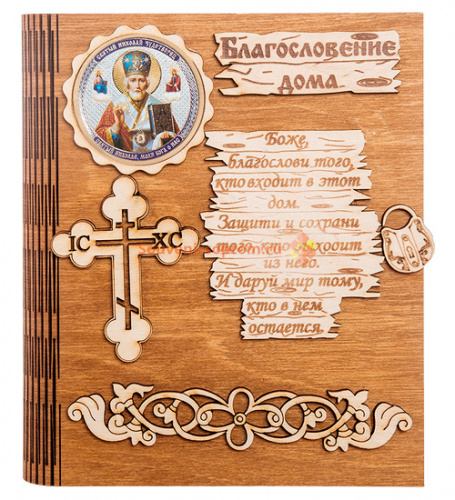 СВЯТЫЙ НИКОЛАЙ ЧУДОТВОРЕЦ
СВЯТЫЙ НИКОЛАЕ, МОЛИ БОГА О НАС
Благословение
дома
Боже,
благослови того,
кто входит в этот
дом.
Защити и сохрани
того, кто выходит
из него.
И даруй мир тому,
кто в нем
остается.
IC XC